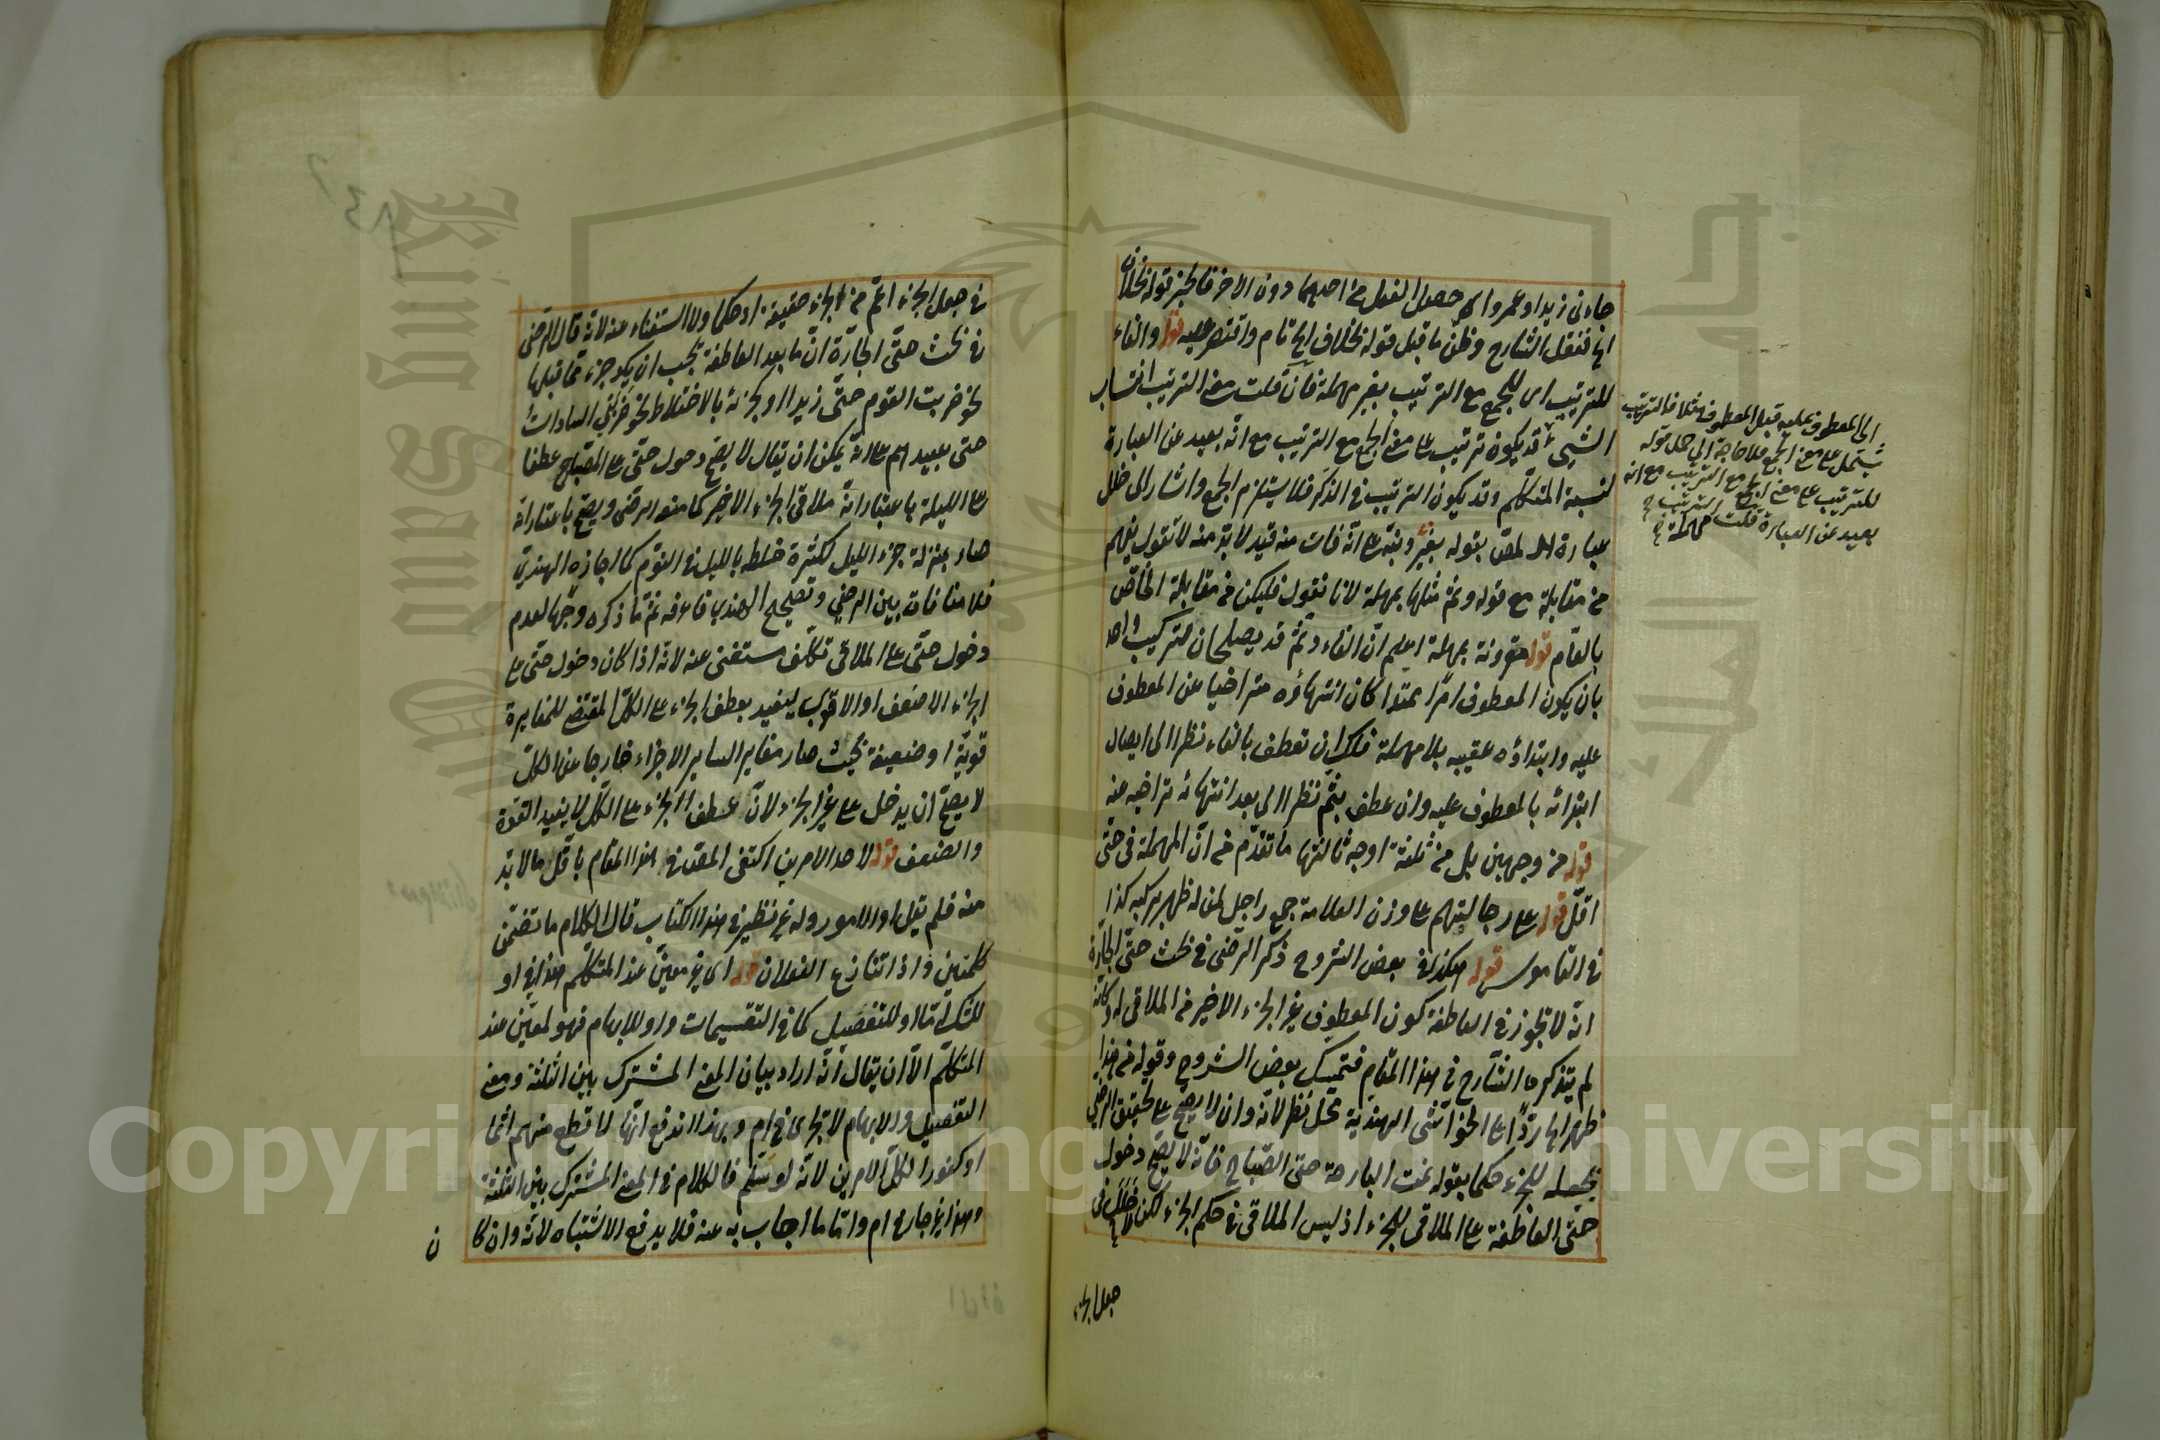 جاءنى زيد او عمرو اى حصل الفعل من احدهما دون الاخر فالخبر قوله بخلاف
ايها فنقل الشارح وظن ما قبل قوله بخلاف ايها تام واقتصر عليه قوله والفاء
للترتيب اى للجمع مع الترتيب بغير مهملة فان قلت معنى الترتيب انتساب
الشيئ قد يكون ترتيب على معنى الجمع مع الترتيب مع انه بعيد عن العبارة
لنسبة المتكلم وقد يكون الترتيب فى الذكر فلا يستلزم الجمع واشار الى خلل
عبارة المص بقوله بغير ونبه على انه فات منه قيد لا بد منه لا تقول يفهم
من مقابلة مع قوله وثم مثلها بمهلة لانا نقول فليكن من مقابلة الخاص
بالعام قوله مقرونة بمهلة اعلم ان الفاء وثم قد يصلحان لتركيب واحد
بان يكون المعطوف امرا ممتدا كان انتهاؤه متراخيا عن المعطوف
عليه وابتداؤه عقيبه بلا مهملة فلك ان تعطف بالفاء نظرا الى ايصال
ابتدائه بالمعطوف عليه وان عطف بثم نظرا الى بعد انتهائه تراخيه منه
قوله من وجهين بل من ثلثة اوجه ثالثها ما تقدم من ان المهملة فى حتى
اقل قوله على رجالتهم على وزن العلامة جمع راجل لمن له ظهر يركبه كذا
فى القاموس قوله هكذا فى بعض الشروح ذكر الرضى فى بحث حتى الجارة
انه لا تجوز فى العاطفة كون المعطوف بغير الجزء الاخير من الملاقى له وكانه
لم يتذكره الشارح فى هذا المقام فتمسك ببعض الشروح وقوله من هذا
ظهر ايها رد على الحواشى الهندية محل نظر لانه وان لا يصح على تحقيق الرضى
بجعله للجزء حكما بقوله نمت البارحة حتى الصباح فانه لا يصح دخول
حتى العاطفة على الملاقى للجزء اذ ليس الملاقى فى حكم الجزء لكن لا خلل فى
جعل الجزء
الى المعطوف عليه قبل المعطوف مثلا فالترتيب
يشتمل على معنى الجمع فلا حاجة الى حمل قوله
للترتيب على معنى الجمع مع الترتيب مع انه
بعيد عن العبارة قلت الترتيب
فى جعل الجزء اعم من الجزء حقيقة او حكما ولا استغناء عنه لانه قال الرضى
فى بحث حتى الجارة ان ما بعد العاطفة يجب ان يكون جزء مما قبلها
نحو ضربت القوم حتى زيدا او كجزئه بالاختلاط نحو ضربنى السادات
حتى عبيدهم على انه يمكن ان يقال لا يصح دخول حتى على الصباح عطفا
على الليلة باعتبار انه ملاقى الجزء الاخير كما منعه الرضى ويصح باعتبار انه
صار بمنزلة جزء الليل لكثرة خلطه بالليل فى النوم كما اجازه الهندى
فلا منافات بين الرضى وتصحيح الهندى فاعرفه ثم ما ذكره وجها لعدم
دخول حتى على الملاقى تكلف مستغنى عنه لانه اذا كان دخول حتى على
الجزء الاضعف او الاقوى ليفيد بعطف الجزء على الكل المقتضى للمغايرة
قوية او ضعيفة بحيث صار مغاير السائر الاجزاء خارجا عن الكل
لا يصح ان يدخل على غير الجزء لان عطف الجزء على الكل لا يفيد القوة
والضعف قوله لاحد الامرين اكتفى المص فى هذا المقام باقل ما لا بد
منه فلم يقل او الامور وله غير نظير فى هذا الكتاب قال الكلام ما تضمن
كلمتين واذا تنازع الفعلان قوله اى غير معين عند المتكلم هذا فى او
للشك اما او للتفصيل كما فى التقسيمات واو للابهام فهو لمعين عند
المتكلم الا ان يقال انه اراد بيان المعنى المشترك بين الثلثة ومعنى
التفصيل والابهام لا تجرى فى ام وبهذا اندفع انها لا تطع منهم اثما
او كفورا لكل الامرين لانه لو سلم فالكلام فى المعنى المشترك بين الثلثة
وهذا غير جار فى ام واما ما اجاب به عنه فلا يدفع الاشتباه لانه وان كا
ن
Copyright © King Saud University
King Saud University